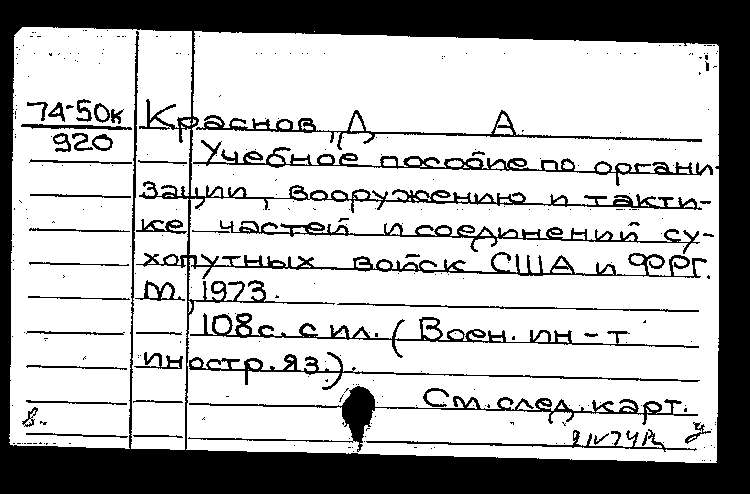 74-50к
920
Краснов, Д А
Учебное пособие по органи-
зации, вооружению и такти-
ке частей и соединений су-
хопутных войск США и ФРГ.
М., 1973.
108с. с ил. (Воен. ин-т
иностр. яз.).
См. след. карт.
8.
9 IV 74